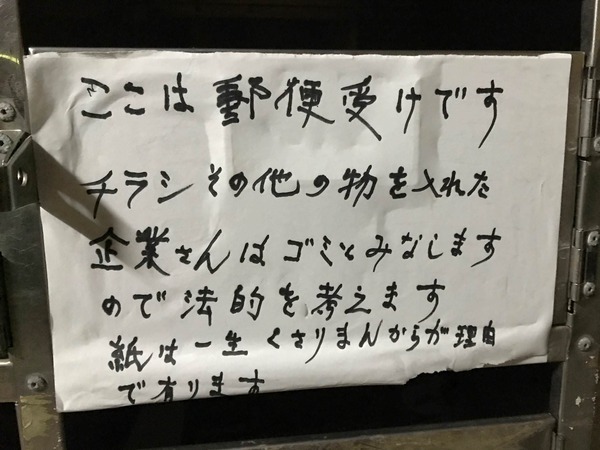 ここは郵便受けです
チラシその他の物を入れた
企業さんはゴミとみなします
ので法的を考えます
紙は一生くさりまんからが理由
で有ります